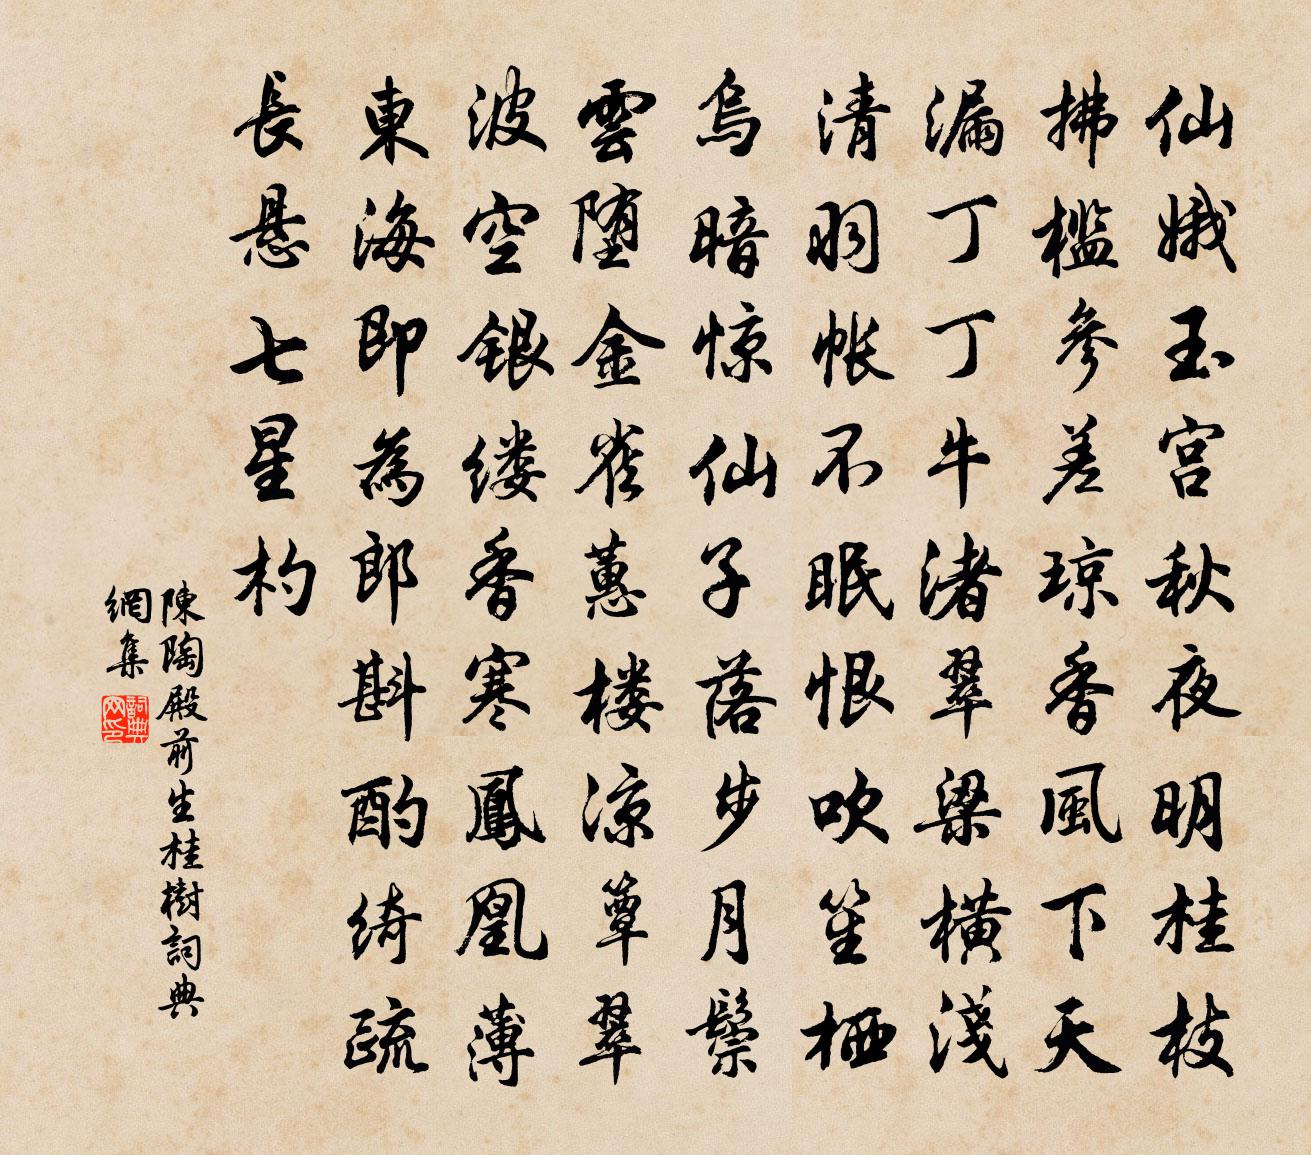 仙娥玉宫秋夜明桂枝
拂槛參差琼香風下天
漏丁丁牛渚翠梁橫淺
清羽帐不眠恨吹笙栖
烏暗惊仙子落步月鬓
雲堕金雀蕙楼凉簟翠
波空銀缕香寒鳳凰薄
東海即為郎斟酌绮疏
長悬七星杓
陳陶殿前生桂樹詞典
網集
詞典网印